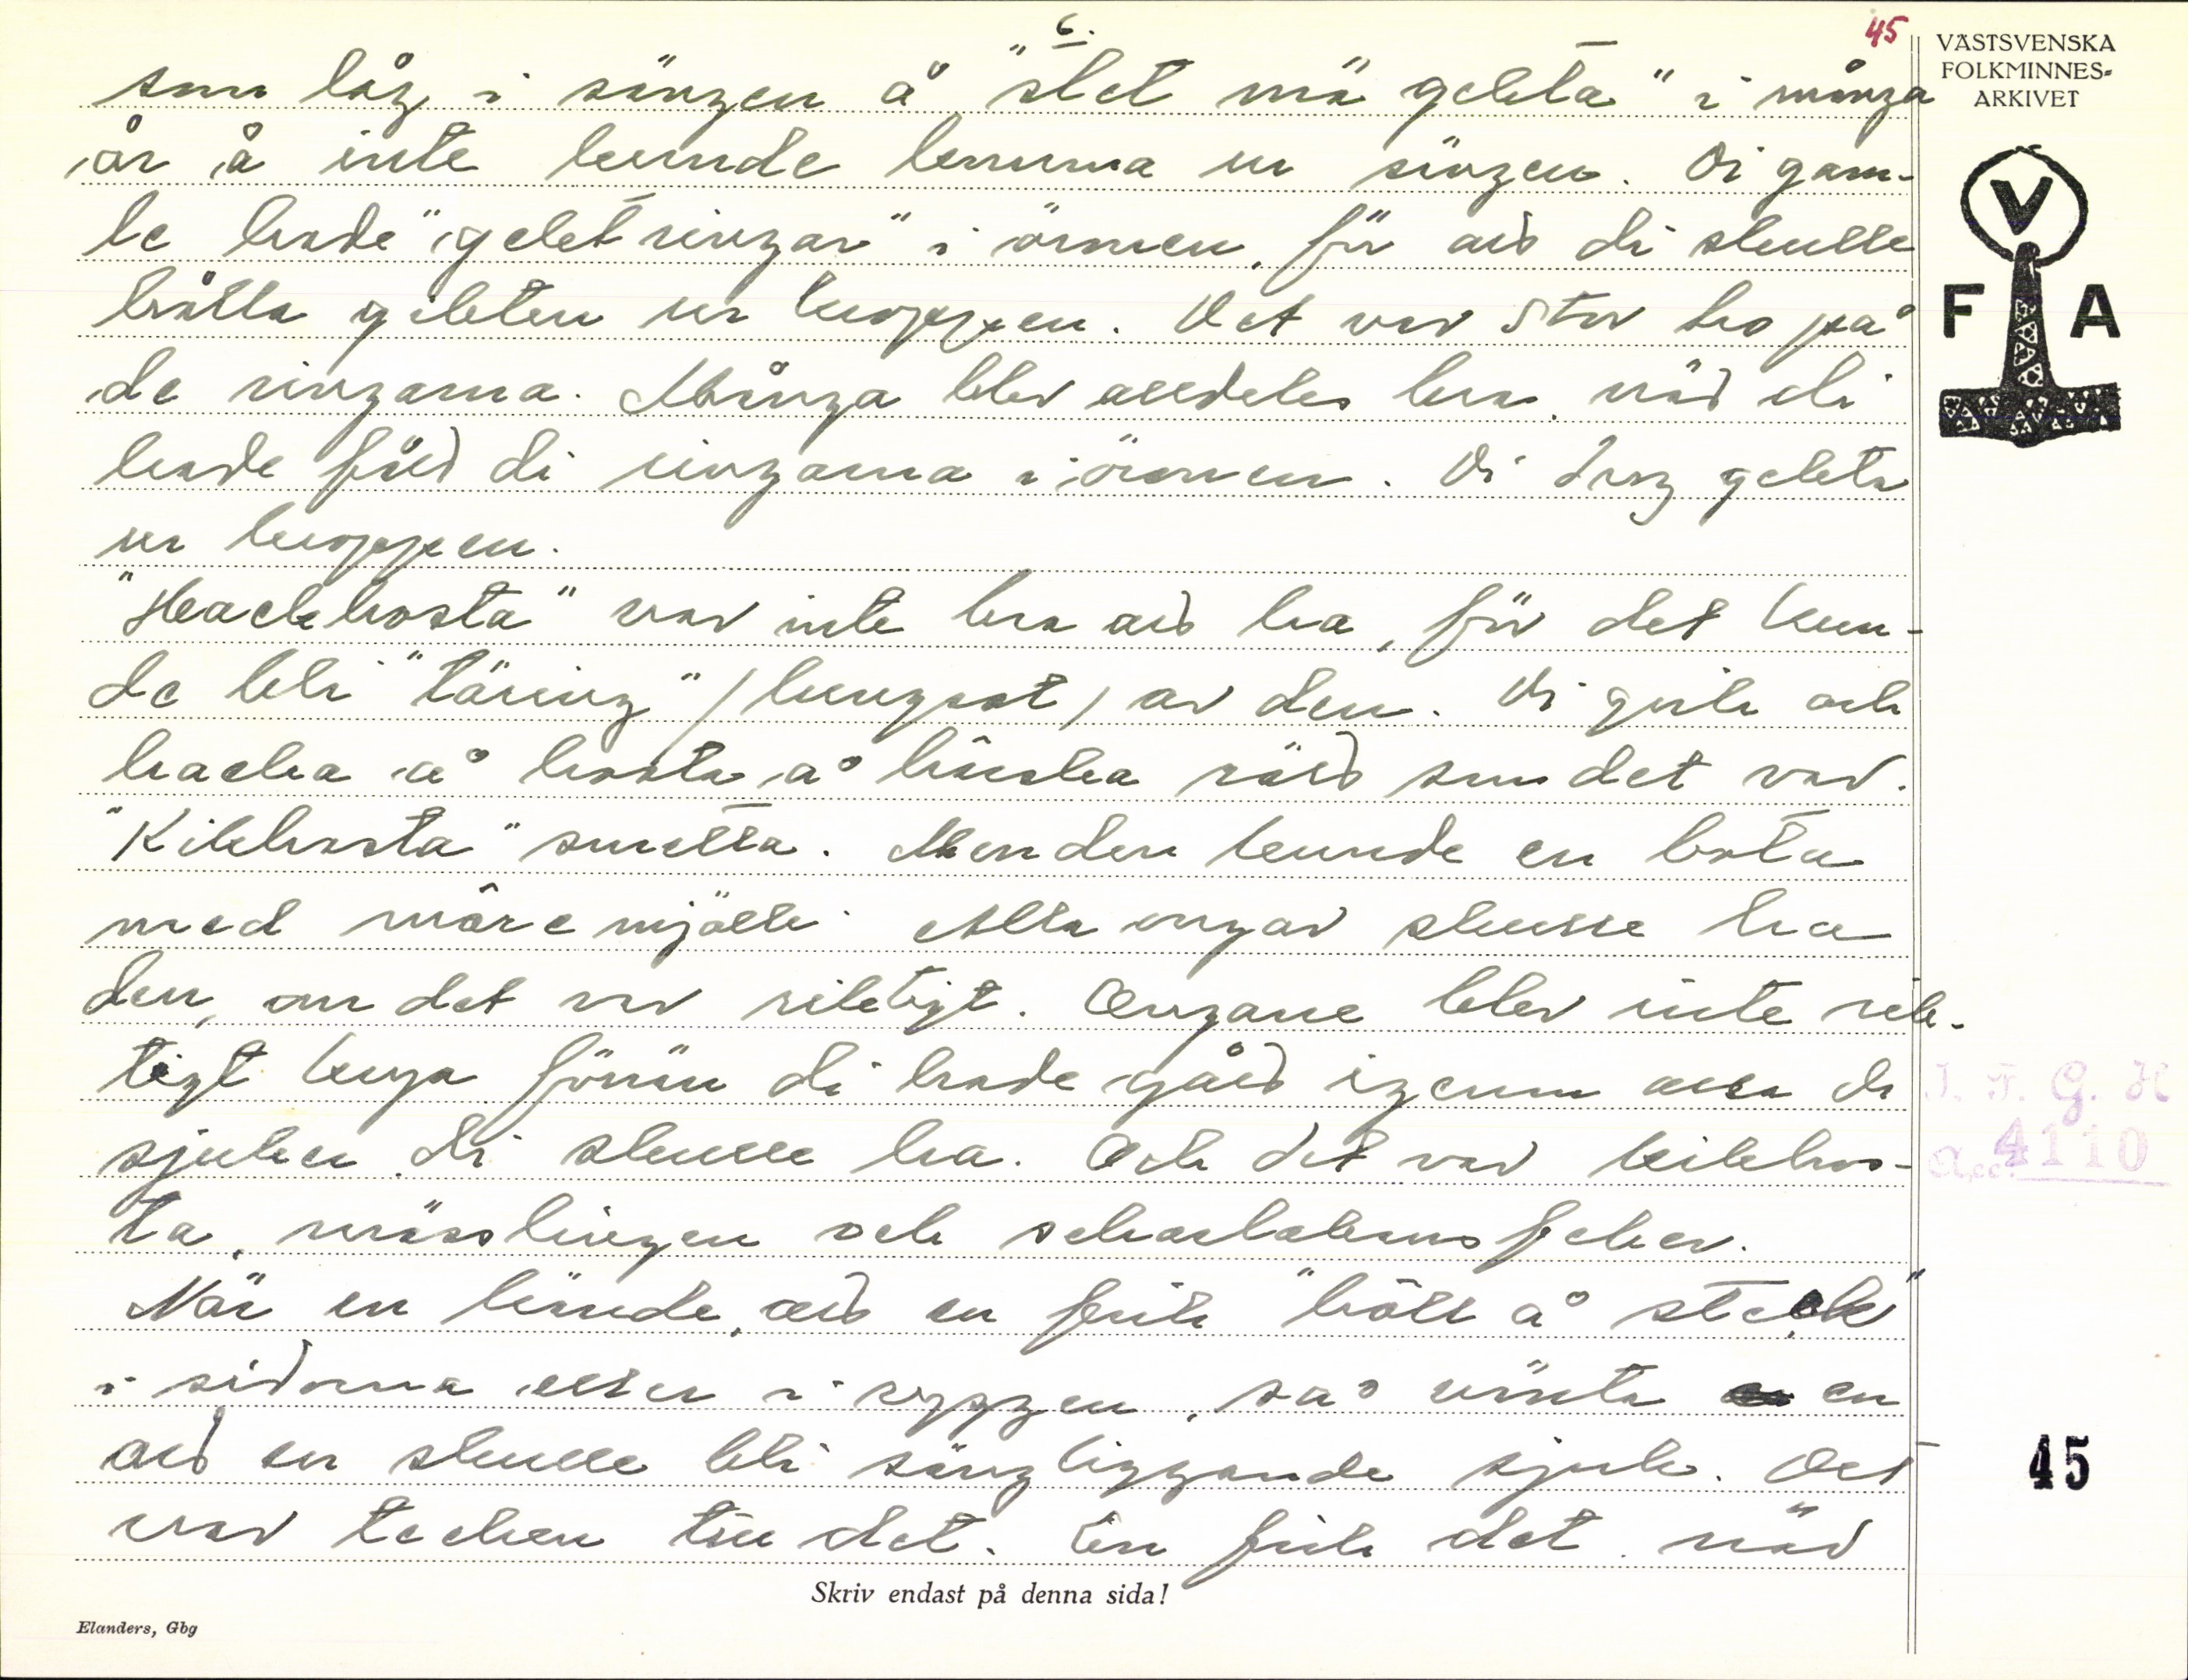 6.
45
VÄSTSVENSKA
FOLKMINNES-
ARKIVET
som låg i sängen å "slet mä gekta" i många
år å inte kunde komma ur sängen. Di gam-
le hade "gektringar" i örmen, för ad di skulle
hålla gekten ur kroppen. Det var stor tro på
de ringarna. Många blev alldeles bra, när di
hade fåd di ringarna i örmen. Di drog gekta
ur kroppen.
"Hackhosta" var inte bra ad ha, för det kun-
de bli "täring" /lungsot/ av den. Di gick och
hacka å hosta å harska räd som det var.
"Kikhosta" smetta. Men den kunde en bota
med märemjölk. Alla ongar skulle ha
den, om det var riktigt. Ongane blev inte rik-
tigt krya förrän di hade gåd igenom alla di
sjuker di skulle ha. Och det var kikhos-
ta, mässlingen och scharlakansfeber.
När en kände, ad en fick "håll å steck"
i sidorna eller i ryggen, så vänta en
ad en skulle bli sängliggande sjuk. Det
var tecken till det. En fick det när
F V A
I. F. G. H
Acc. 4110
45
Skriv endast på denna sida!
Elanders, Gbg